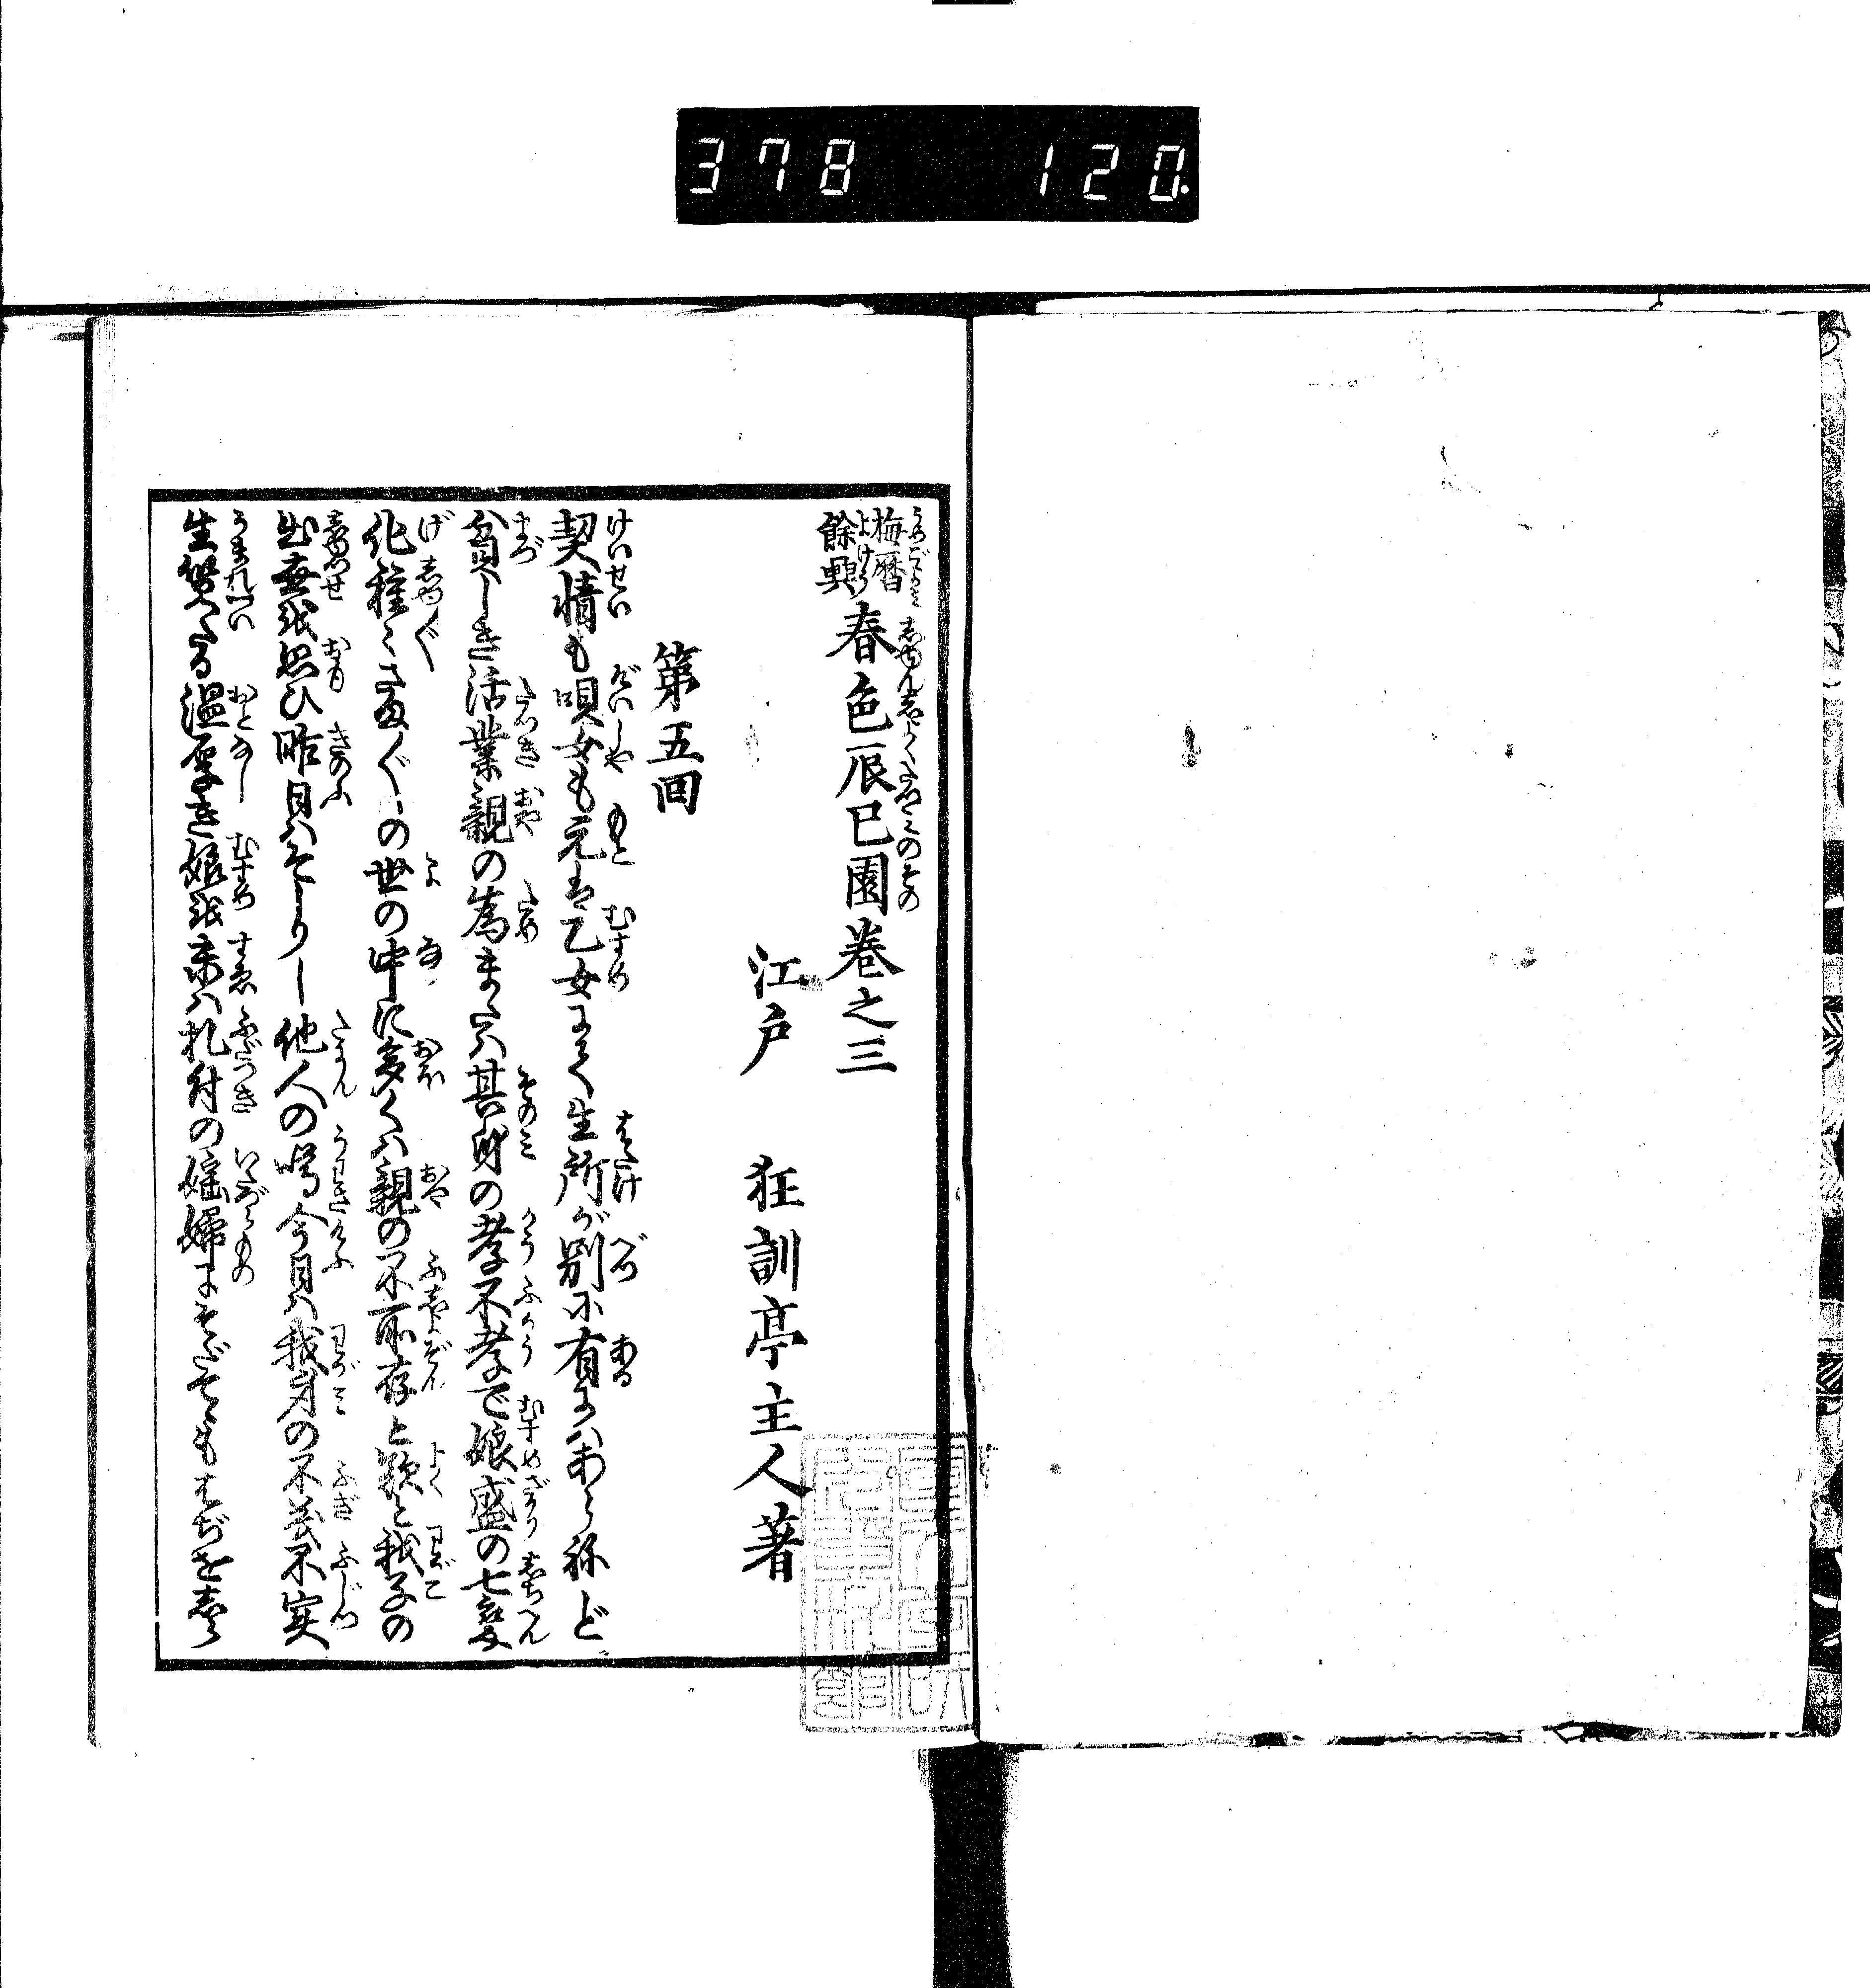 378 120
梅暦餘興 春色辰巳園巻之三
江戸 狂訓亭主人著
第五回
契情も唄女も元は乙女にて生所が別に有にはあらねど
貧しき活業親の為または其身の孝不孝で娘盛の七変
化種々さま〴〵の世の中に多くは親の不所存と欲と我子の
出世を思ひ昨日はそしりし他人の噂今日は我身の不義不実
生質たる温厚き娘を末は札付の婬婦にそだてもはぢをしら